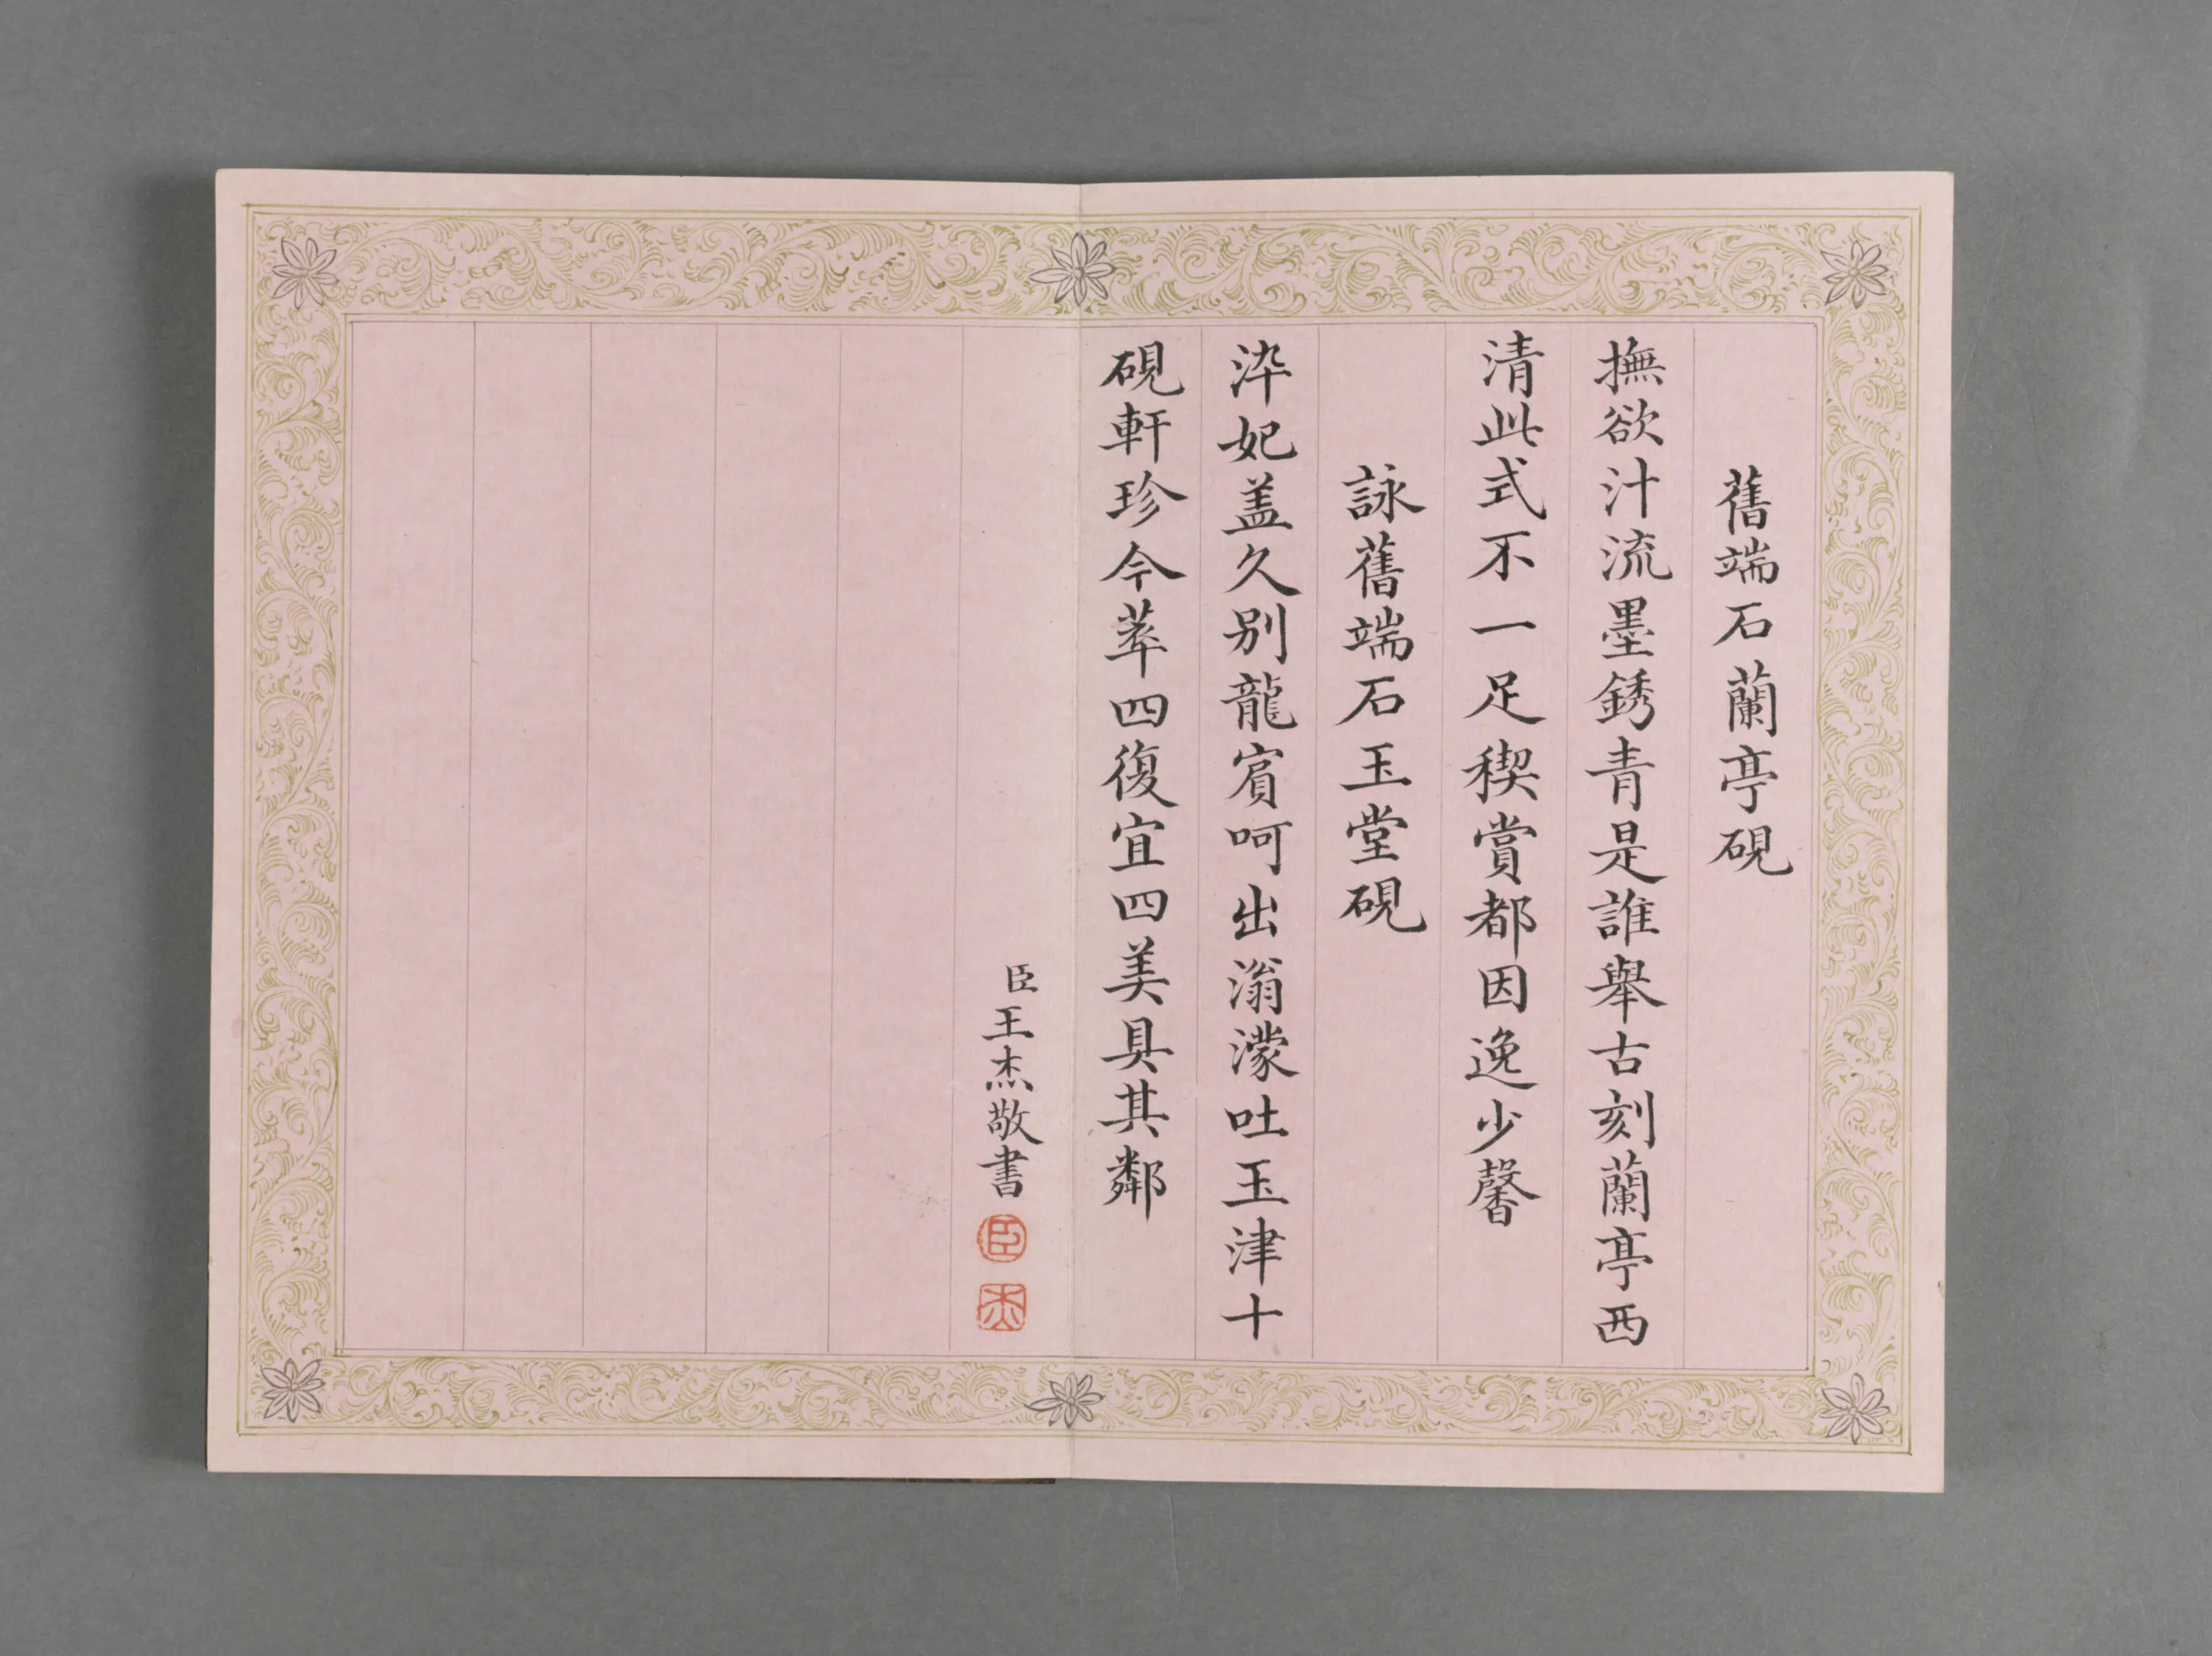 舊端石蘭亭硯
撫欲汁流墨銹青是誰舉古刻蘭亭西
清此式不一足稧賞都因逸少馨
詠舊端石玉堂硯
淬妃盖久別龍賔呵出滃濛吐玉津十
硯軒珍今萃四復宜四美具其鄰
臣王杰敬書
臣
杰